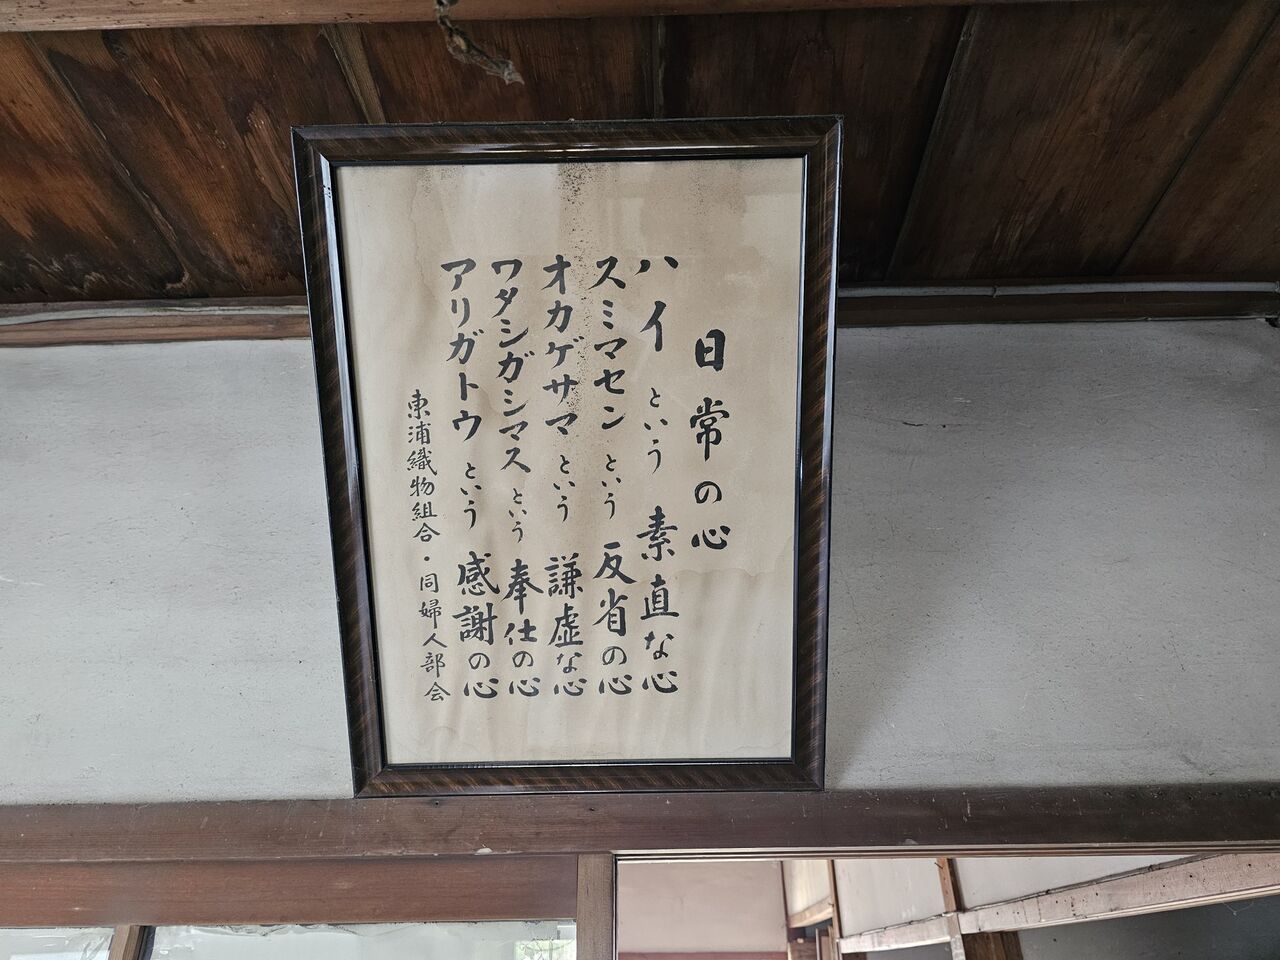 日常の心
ハイという素直な心
スミマセンという反省の心
オカゲサマという謙虚な心
ワタシガシマスという奉仕の心
アリガトウという感謝の心
東浦織物組合・同婦人部会